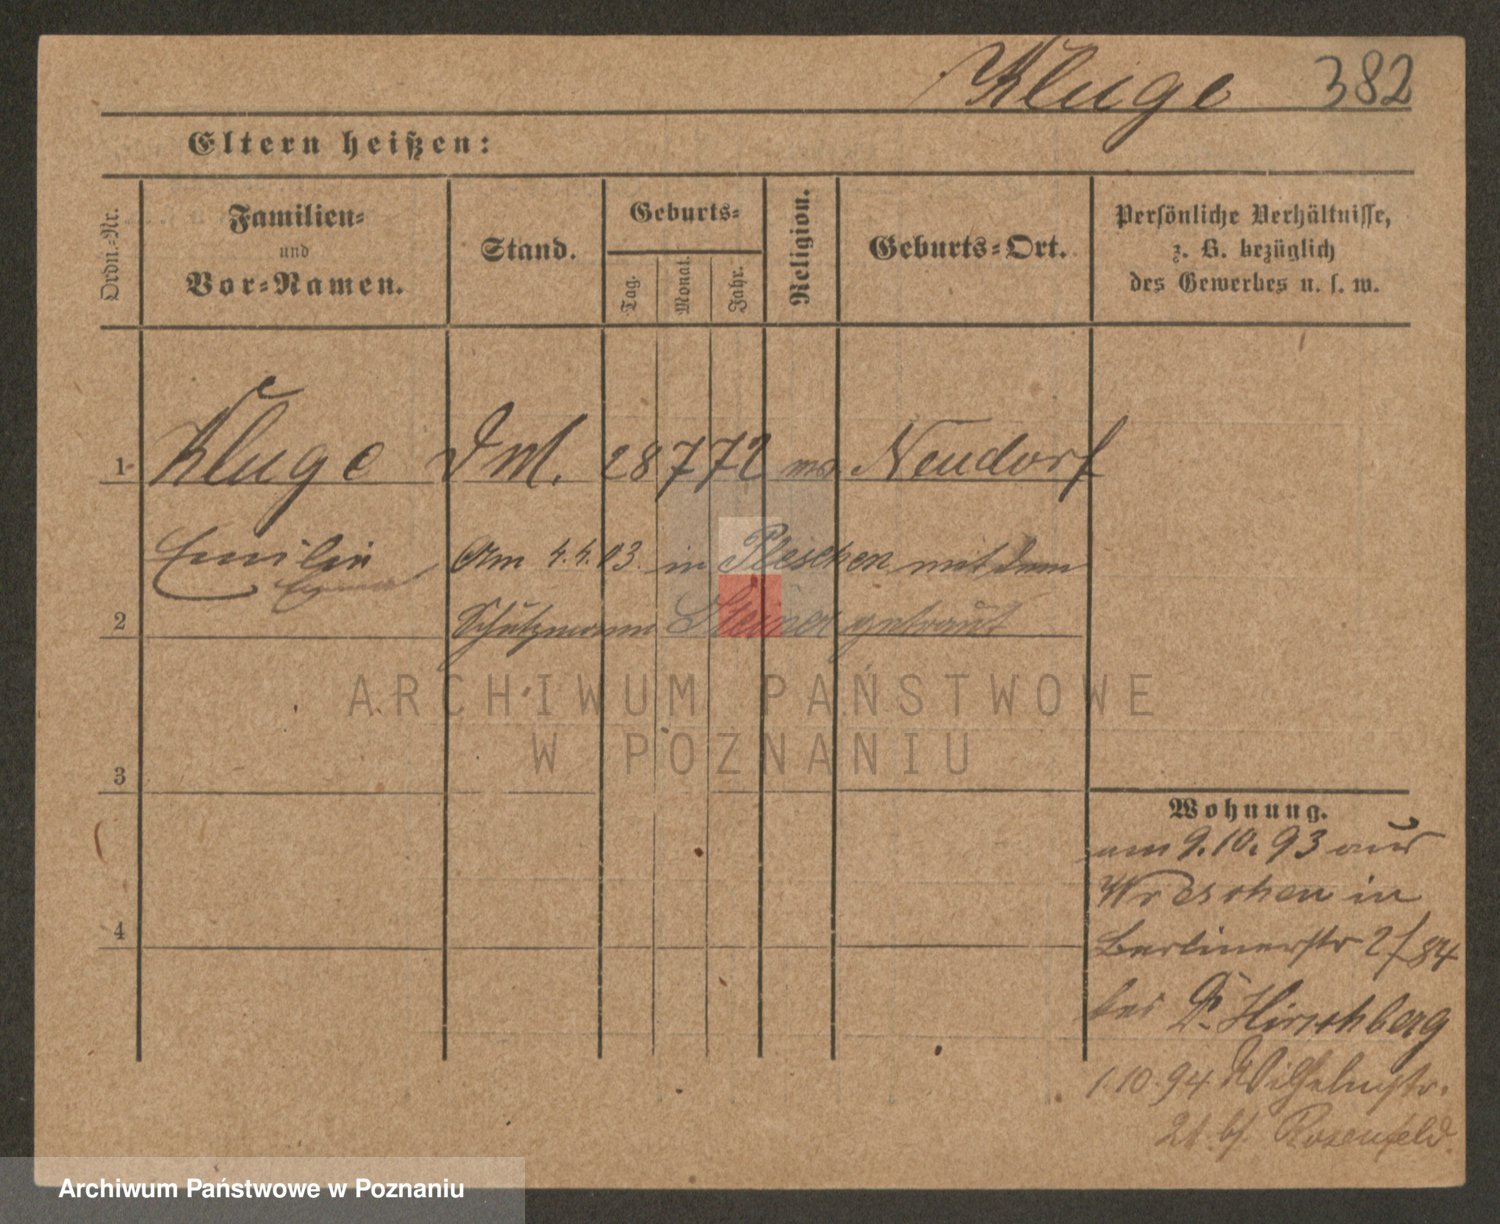 Kluge 382
Eltern heißen:
Ordn.-Nr.
Familien-
und
Vor-Namen.
Stand.
Geburts-
Tag.
Monat.
Jahr.
Religion.
Geburts-Ort.
Persönliche Verhältnisse,
z. B. bezüglich
des Gewerbes u. s. w.
1 Kluge 28 7 72 Neudorf
Emilie Am 4.4.03. in Pleschen mit dem
2 Schutzmann Steiner getraut
ARCHIWUM PAŃSTWOWE
W POZNANIU
3
4
Wohnung.
am 9.10.93 aus
Wreschen in
Berlinerstr 2/84
bei Dr. Hirschberg
1.10.94 Wilhelmstr.
21. bf. Rosenfeld.
Archiwum Państwowe w Poznaniu